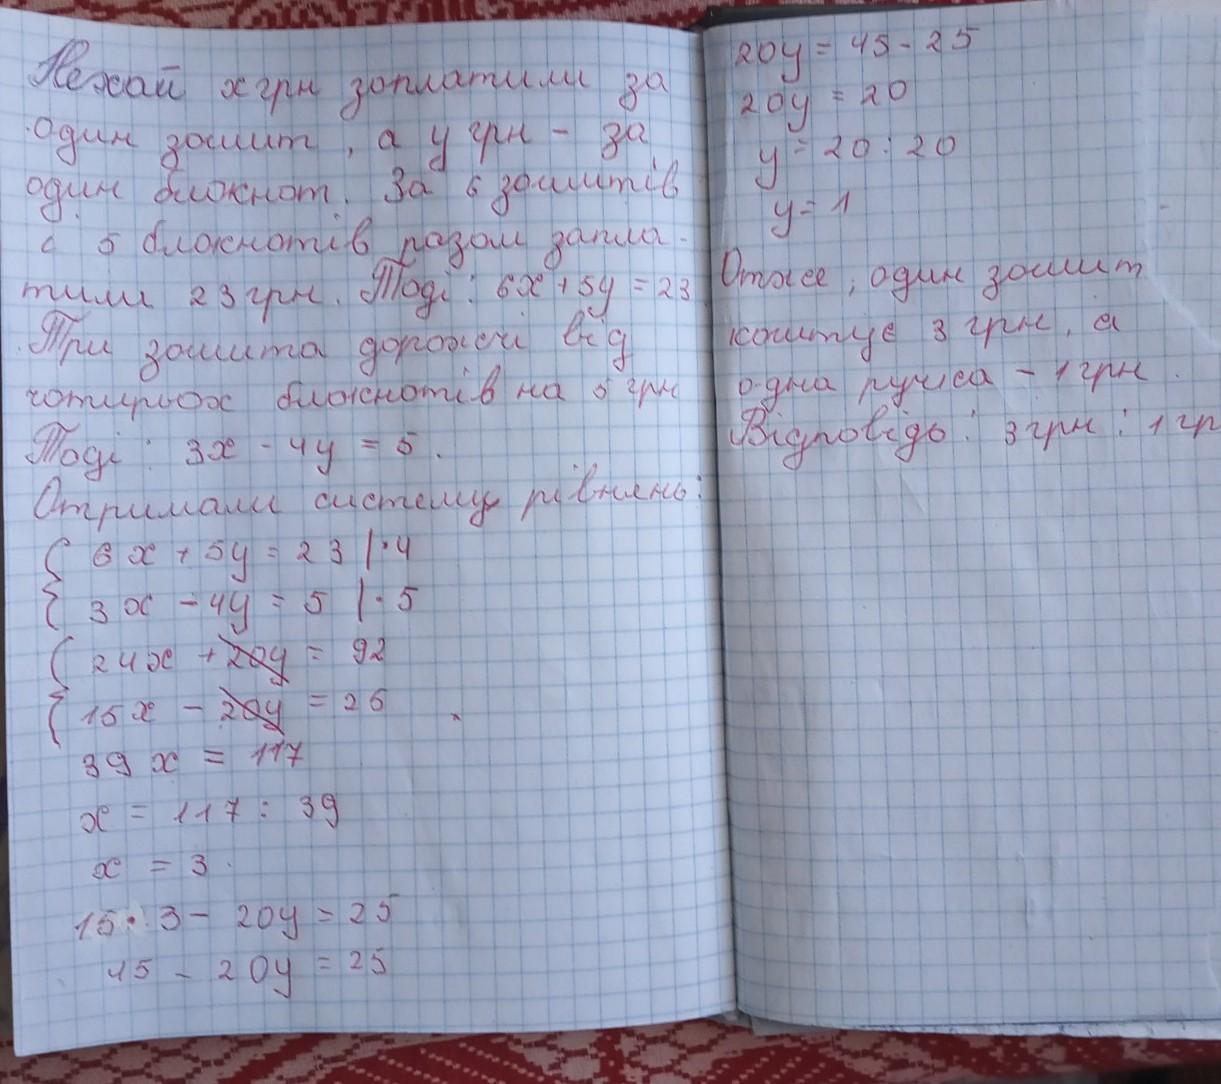 Нехай х грн заплатили за
один зошит, а у грн - за
один блокнот. За 6 зошитів
і 5 блокнотів разом запла-
тили 23 грн. Тоді: 6х + 5у = 23
Три зошита дорожчі від
чотирьох блокнотів на 5 грн
Тоді: 3х - 4у = 5.
Отримали систему рівнянь:
6х + 5у = 23 |·4
3х - 4у = 5 |·5
24х + 20у = 92
15х - 20у = 25
39х = 117
х = 117 : 39
х = 3.
15·3 - 20у = 25
45 - 20у = 25
20у = 45 - 25
20у = 20
у = 20 : 20
у = 1
Отже, один зошит
коштує 3 грн, а
одна ручка - 1 грн.
Відповідь: 3 грн; 1 гр